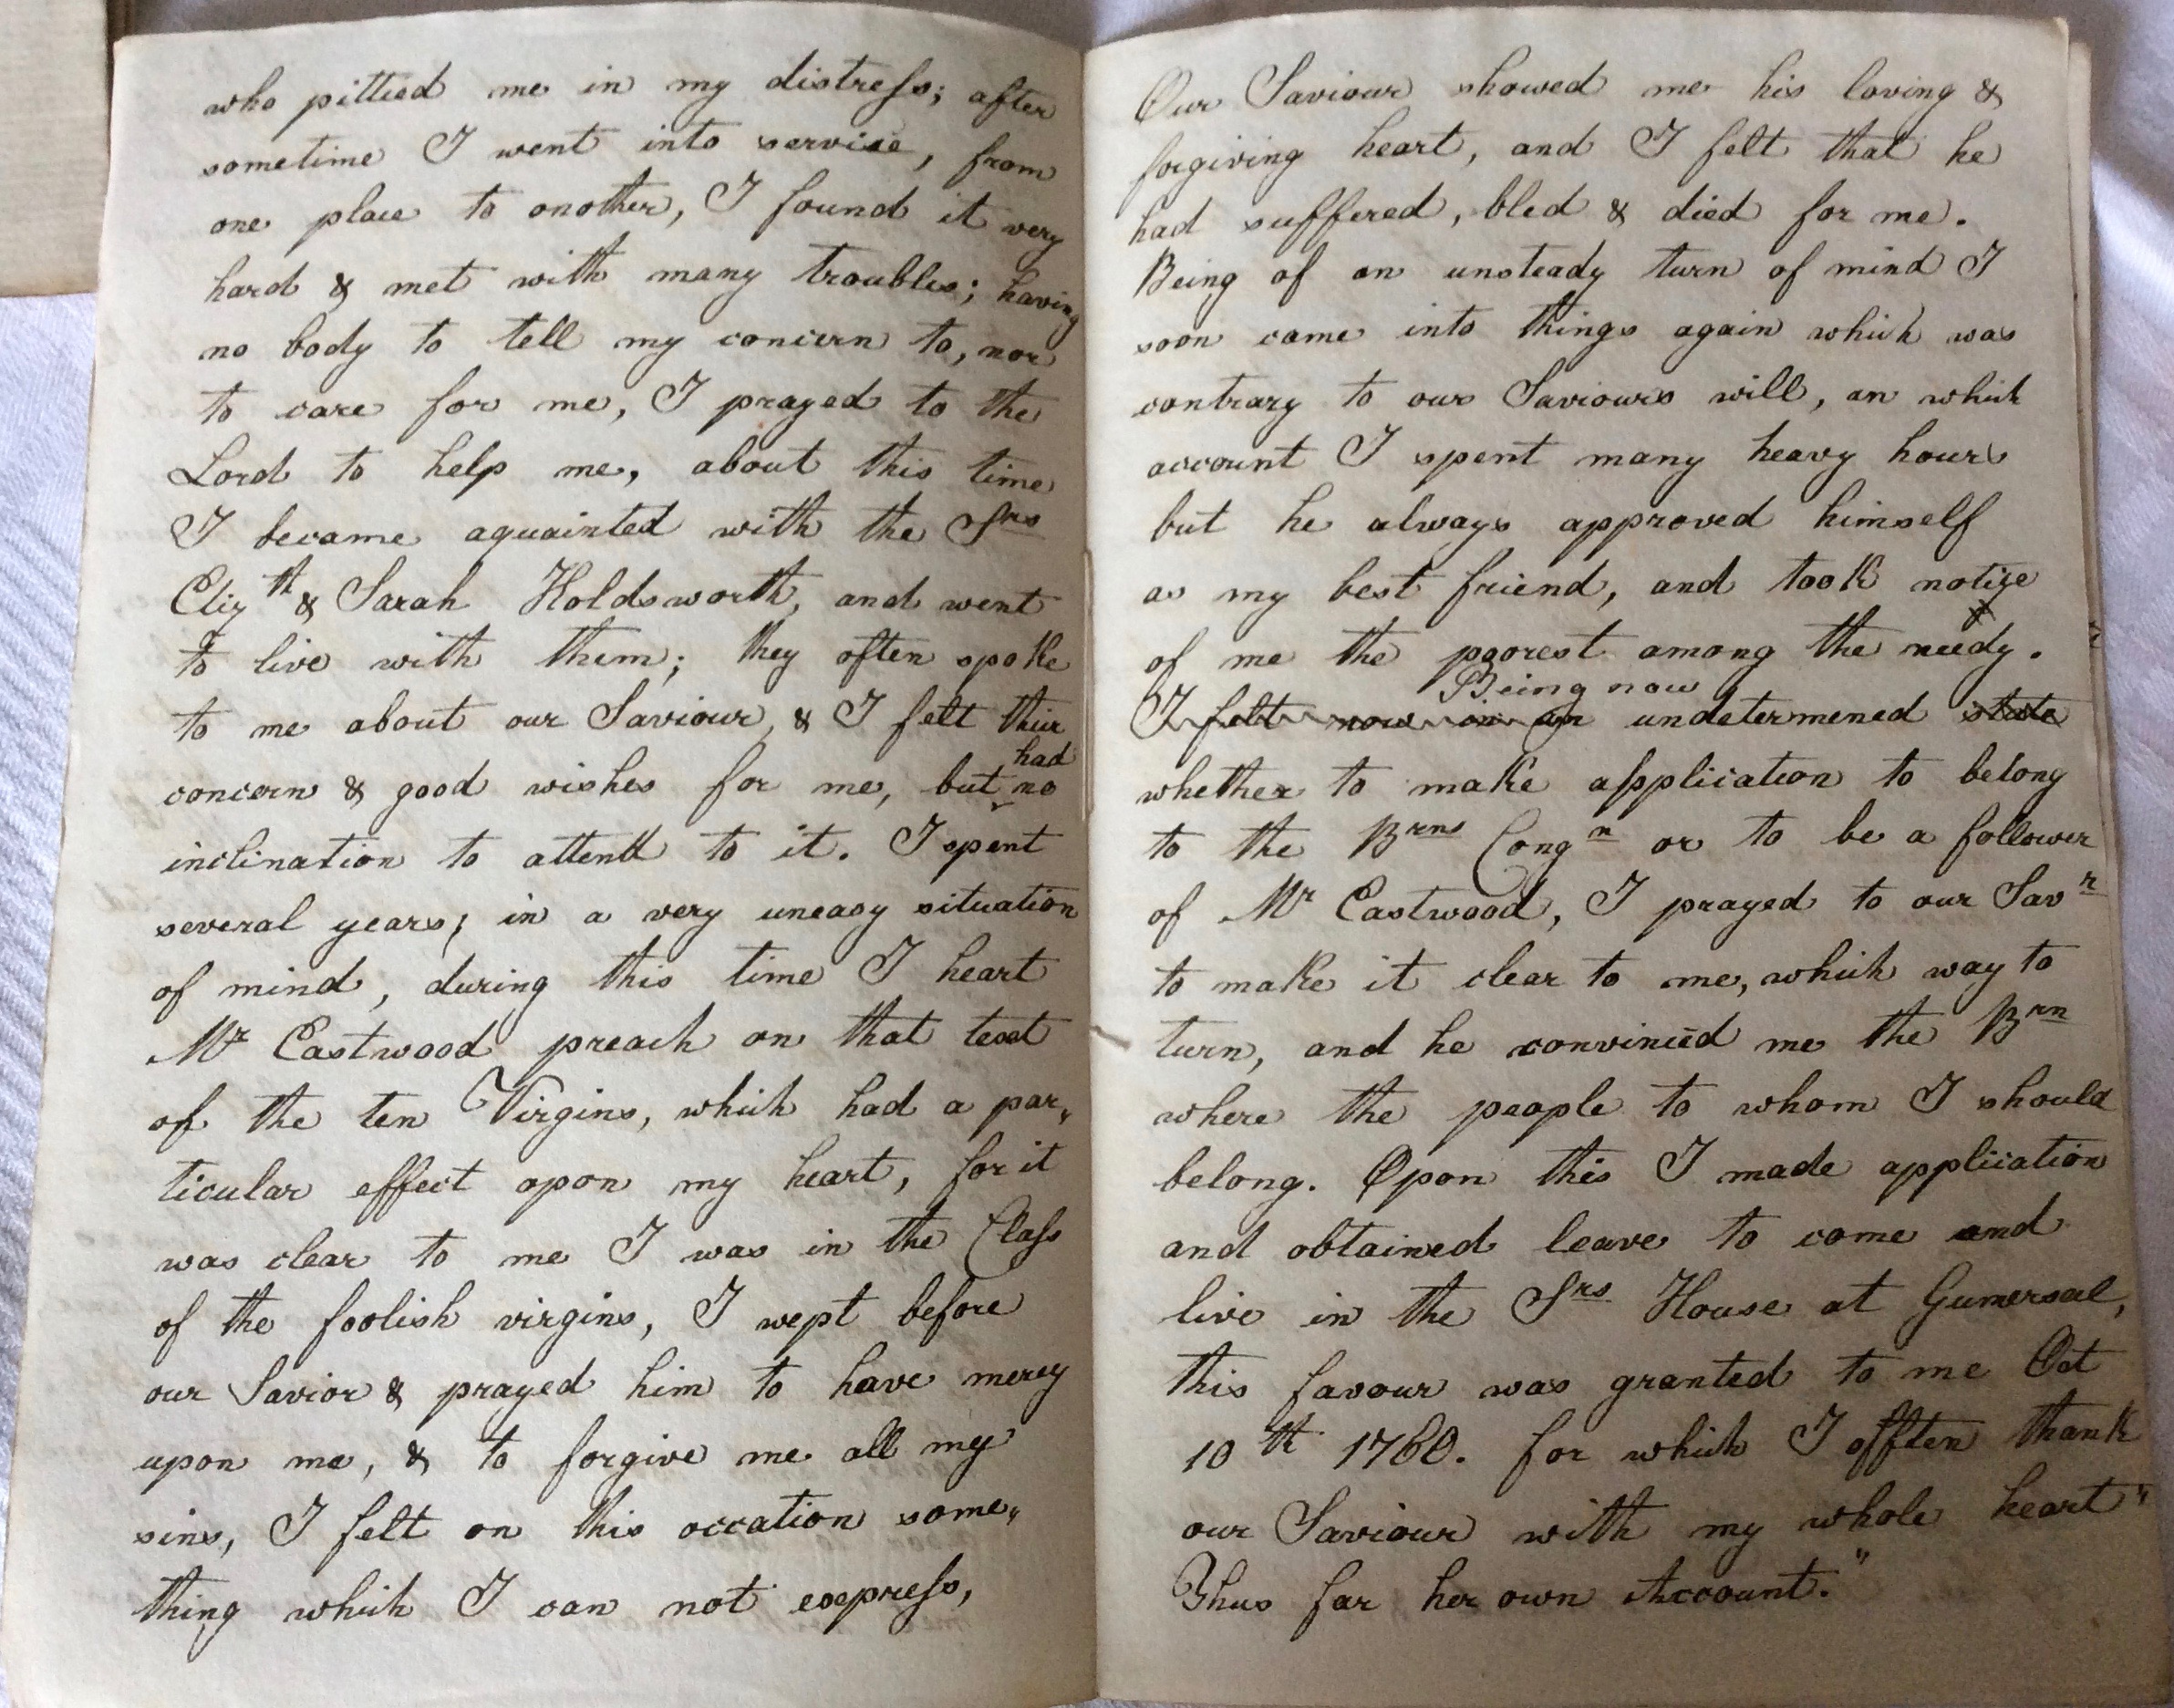 who pittied me in my distress; after
sometime I went into service, from
one place to onother, I found it very
hard & met with many troubles; having
no body to tell my concern to, nor
to care for me, I prayed to the
Lord to help me, about this time
I became aquainted with the Srs
Elizth & Sarah Holdsworth, and went
to live with them; they often spoke
to me about our Saviour, & I felt their
concern & good wishes for me, but had no
inclination to attend to it. I spent
several years, in a very uneasy situation
of mind, during this time I heart
Mr Eastwood preach on that text
of the ten Virgins, which had a par„
ticular effect upon my heart, for it
was clear to me I was in the Class
of the foolish virgins, I wept before
our Savior & prayed him to have mercy
upon me, & to forgive me all my
sins, I felt on this occation some„
thing which I can not express,
Our Saviour showed me his loving &
forgiving heart, and I felt that he
had suffered, bled & died for me.
Being of an unsteady turn of mind I
soon came into things again which was
contrary to our Saviours will, on which
account I spent many heavy hours
but he always approved himself
as my best friend, and took notize
of me the poorest among the needy.
Being now
I felt now in an undetermened state
whether to make application to belong
to the Brns Congn or to be a follower
of Mr Eastwood, I prayed to our Savr
to make it clear to me, which way to
turn, and he convinced me the Brn
where the people to whom I should
belong. Opon this I made application
and obtained leave to come and
live in the Srs House at Gumersal,
this favour was granted to me Oct
10th 1760. for which I offten thank
our Saviour with my whole heart"
Thus far her own Account."